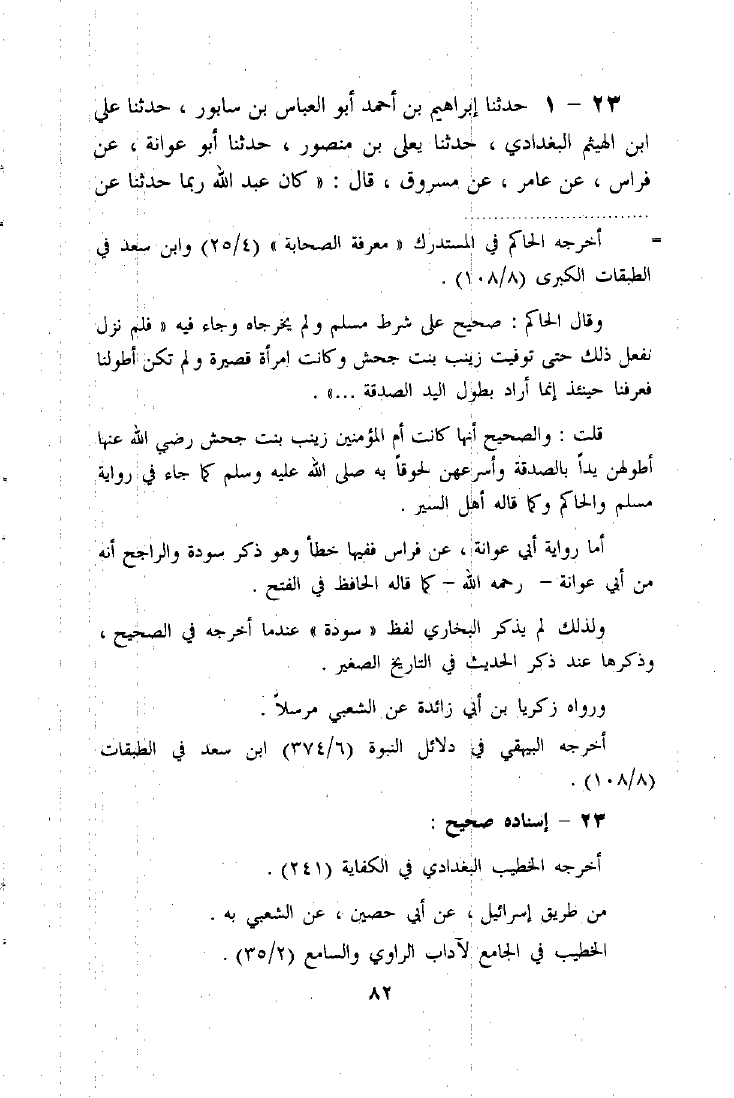 ٢٣ – ١ حدثنا إبراهيم بن أحمد أبو العباس بن سابور ، حدثنا علي
ابن الهيثم البغدادي ، حدثنا يعلى بن منصور ، حدثنا أبو عوانة ، عن
فراس ، عن عامر ، عن مسروق ، قال : « كان عبد الله ربما حدثنا عن
= أخرجه الحاكم في المستدرك « معرفة الصحابة » (٢٥/٤) وابن سعد في
الطبقات الكبرى (١٠٨/٨) .
وقال الحاكم : صحيح على شرط مسلم ولم يخرجاه وجاء فيه « فلم نزل
نفعل ذلك حتى توفيت زينب بنت جحش وكانت امرأة قصيرة ولم تكن أطولنا
فعرفنا حينئذ إنما أراد بطول اليد الصدقة ...» .
قلت : والصحيح أنها كانت أم المؤمنين زينب بنت جحش رضي الله عنها
أطولهن يداً بالصدقة وأسرعهن لحوقاً به صلى الله عليه وسلم كما جاء في رواية
مسلم والحاكم وكما قاله أهل السير .
أما رواية أبي عوانة ، عن فراس ففيها خطأ وهو ذكر سودة والراجح أنه
من أبي عوانة – رحمه الله – كما قاله الحافظ في الفتح .
ولذلك لم يذكر البخاري لفظ « سودة » عندما أخرجه في الصحيح ،
وذكرها عند ذكر الحديث في التاريخ الصغير .
ورواه زكريا بن أبي زائدة عن الشعبي مرسلاً .
أخرجه البيهقي في دلائل النبوة (٣٧٤/٦) ابن سعد في الطبقات
(١٠٨/٨) .
٢٣ – إسناده صحيح :
أخرجه الخطيب البغدادي في الكفاية (٢٤١) .
من طريق إسرائيل ، عن أبي حصين ، عن الشعبي به .
الخطيب في الجامع لآداب الراوي والسامع (٣٥/٢) .
٨٢